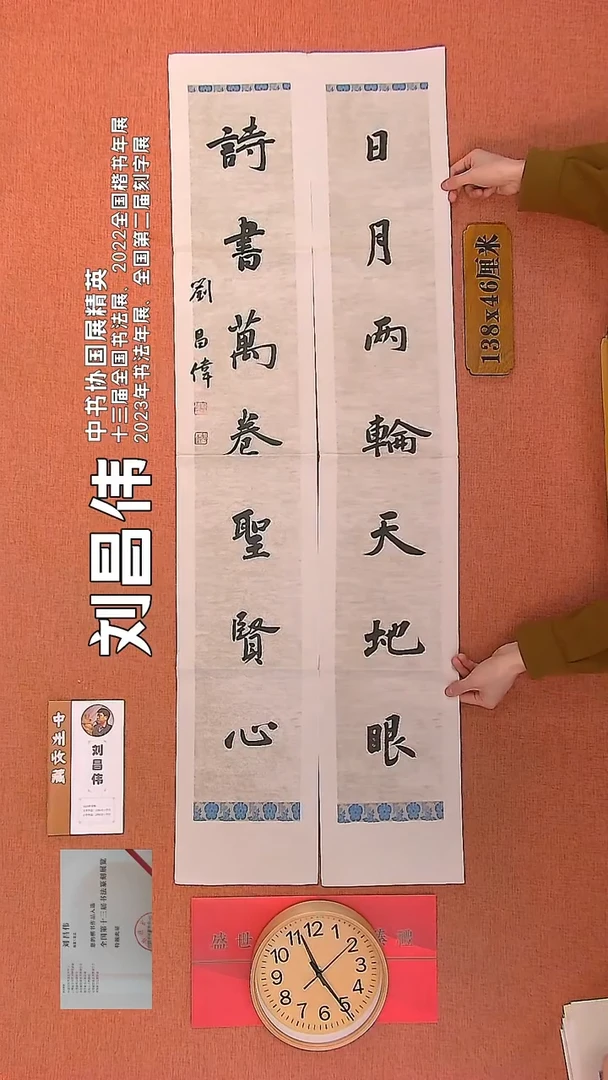 日月两輪天地眼
詩書萬卷聖賢心
劉昌偉
138x46厘米
中书协国展精英
十三届全国书法展、2022全国楷书年展
2023年书法年展、全国第二届刻字展
刘昌伟
刘昌伟
刘昌伟
全国第十三届书法篆刻展览
特颁此证
盛世
12
1
2
3
4
5
6
7
8
9
10
11